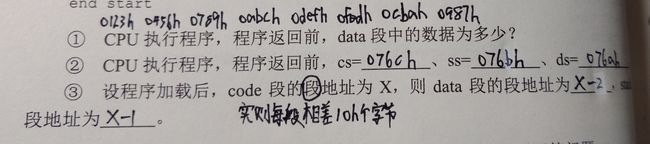 end start
0123h 0456h 0789h 0abch 0defh 0fedh 0cbah 0987h
① CPU 执行程序,程序返回前,data 段中的数据为多少?
② CPU 执行程序,程序返回前,cs= 076ch 、ss= 076bh 、ds= 076ah
③ 设程序加载后,code 段的段地址为 X,则 data 段的段地址为 X-2 ,
段地址为 X-1 。 实则每段相差10h个字节